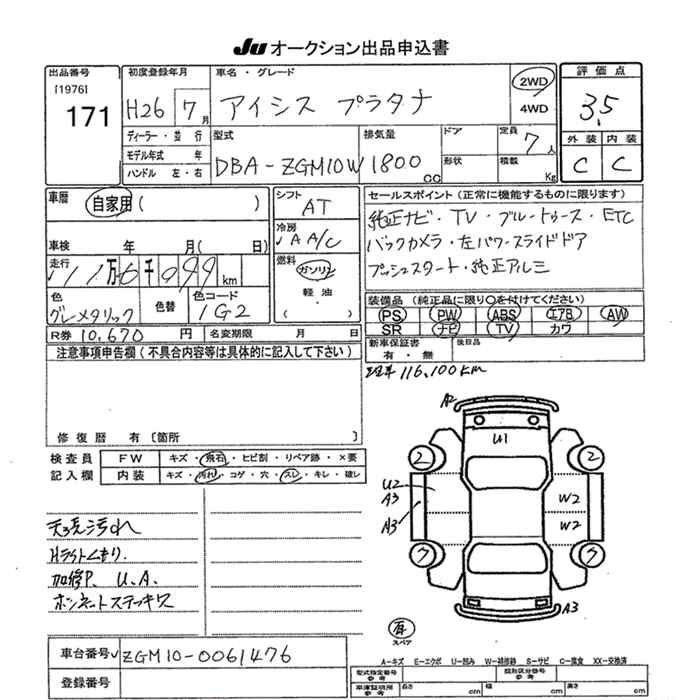 Ju オークション出品申込書
出品番号
[1976]
171
初度登録年月
H26 7月
車名・グレード
アイシス プラタナ
2WD
4WD
評価点
3.5
外装 内装
C C
ディーラー・並行
モデル年式 年
ハンドル 左・右
型式
DBA-ZGM10W
排気量
1800 cc
ドア
形状
定員
7人
積載
Kg
車歴
自家用( )
車検 年 月( 日)
走行
11万6千099km
色
グレーメタリック
色替
色コード
1G2
シフト
AT
冷房
AA/C
燃料
ガソリン
軽油
( )
セールスポイント(正常に機能するものに限ります)
純正ナビ・TV・ブルートゥース・ETC
バックカメラ・左パワースライドドア
プッシュスタート・純正アルミ
装備品(純正品に限り○を付けてください)
PS PW ABS エアB AW
SR ナビ TV カワ
新車保証書
有・無
後日品
R券 10,670 円 名変期限 月 日
注意事項申告欄(不具合内容等は具体的に記入して下さい)
修復歴 有 〔箇所 〕
116,100km
検査員
記入欄
FW キズ・飛石・ヒビ割・リペア跡・×要
内装 キズ・汚れ・コゲ・穴・スレ・キレ・破レ
天張汚れ
Hライトくもり
加修P、U.A.
ボンネットステッキワ
A2
U1
2
2
U2
A3
A3
W2
W2
7
7
A3
有
スペア
車台番号 ZGM10-0061476
登録番号
A-キズ E-エクボ U-凹み W-補修跡 S-サビ C-腐食 XX-交換済
型式指定番号
参考
類別区分番号
参考
車庫証明用
参考
長さ cm 幅 cm 高さ cm